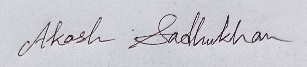 Akash Sadhukhan